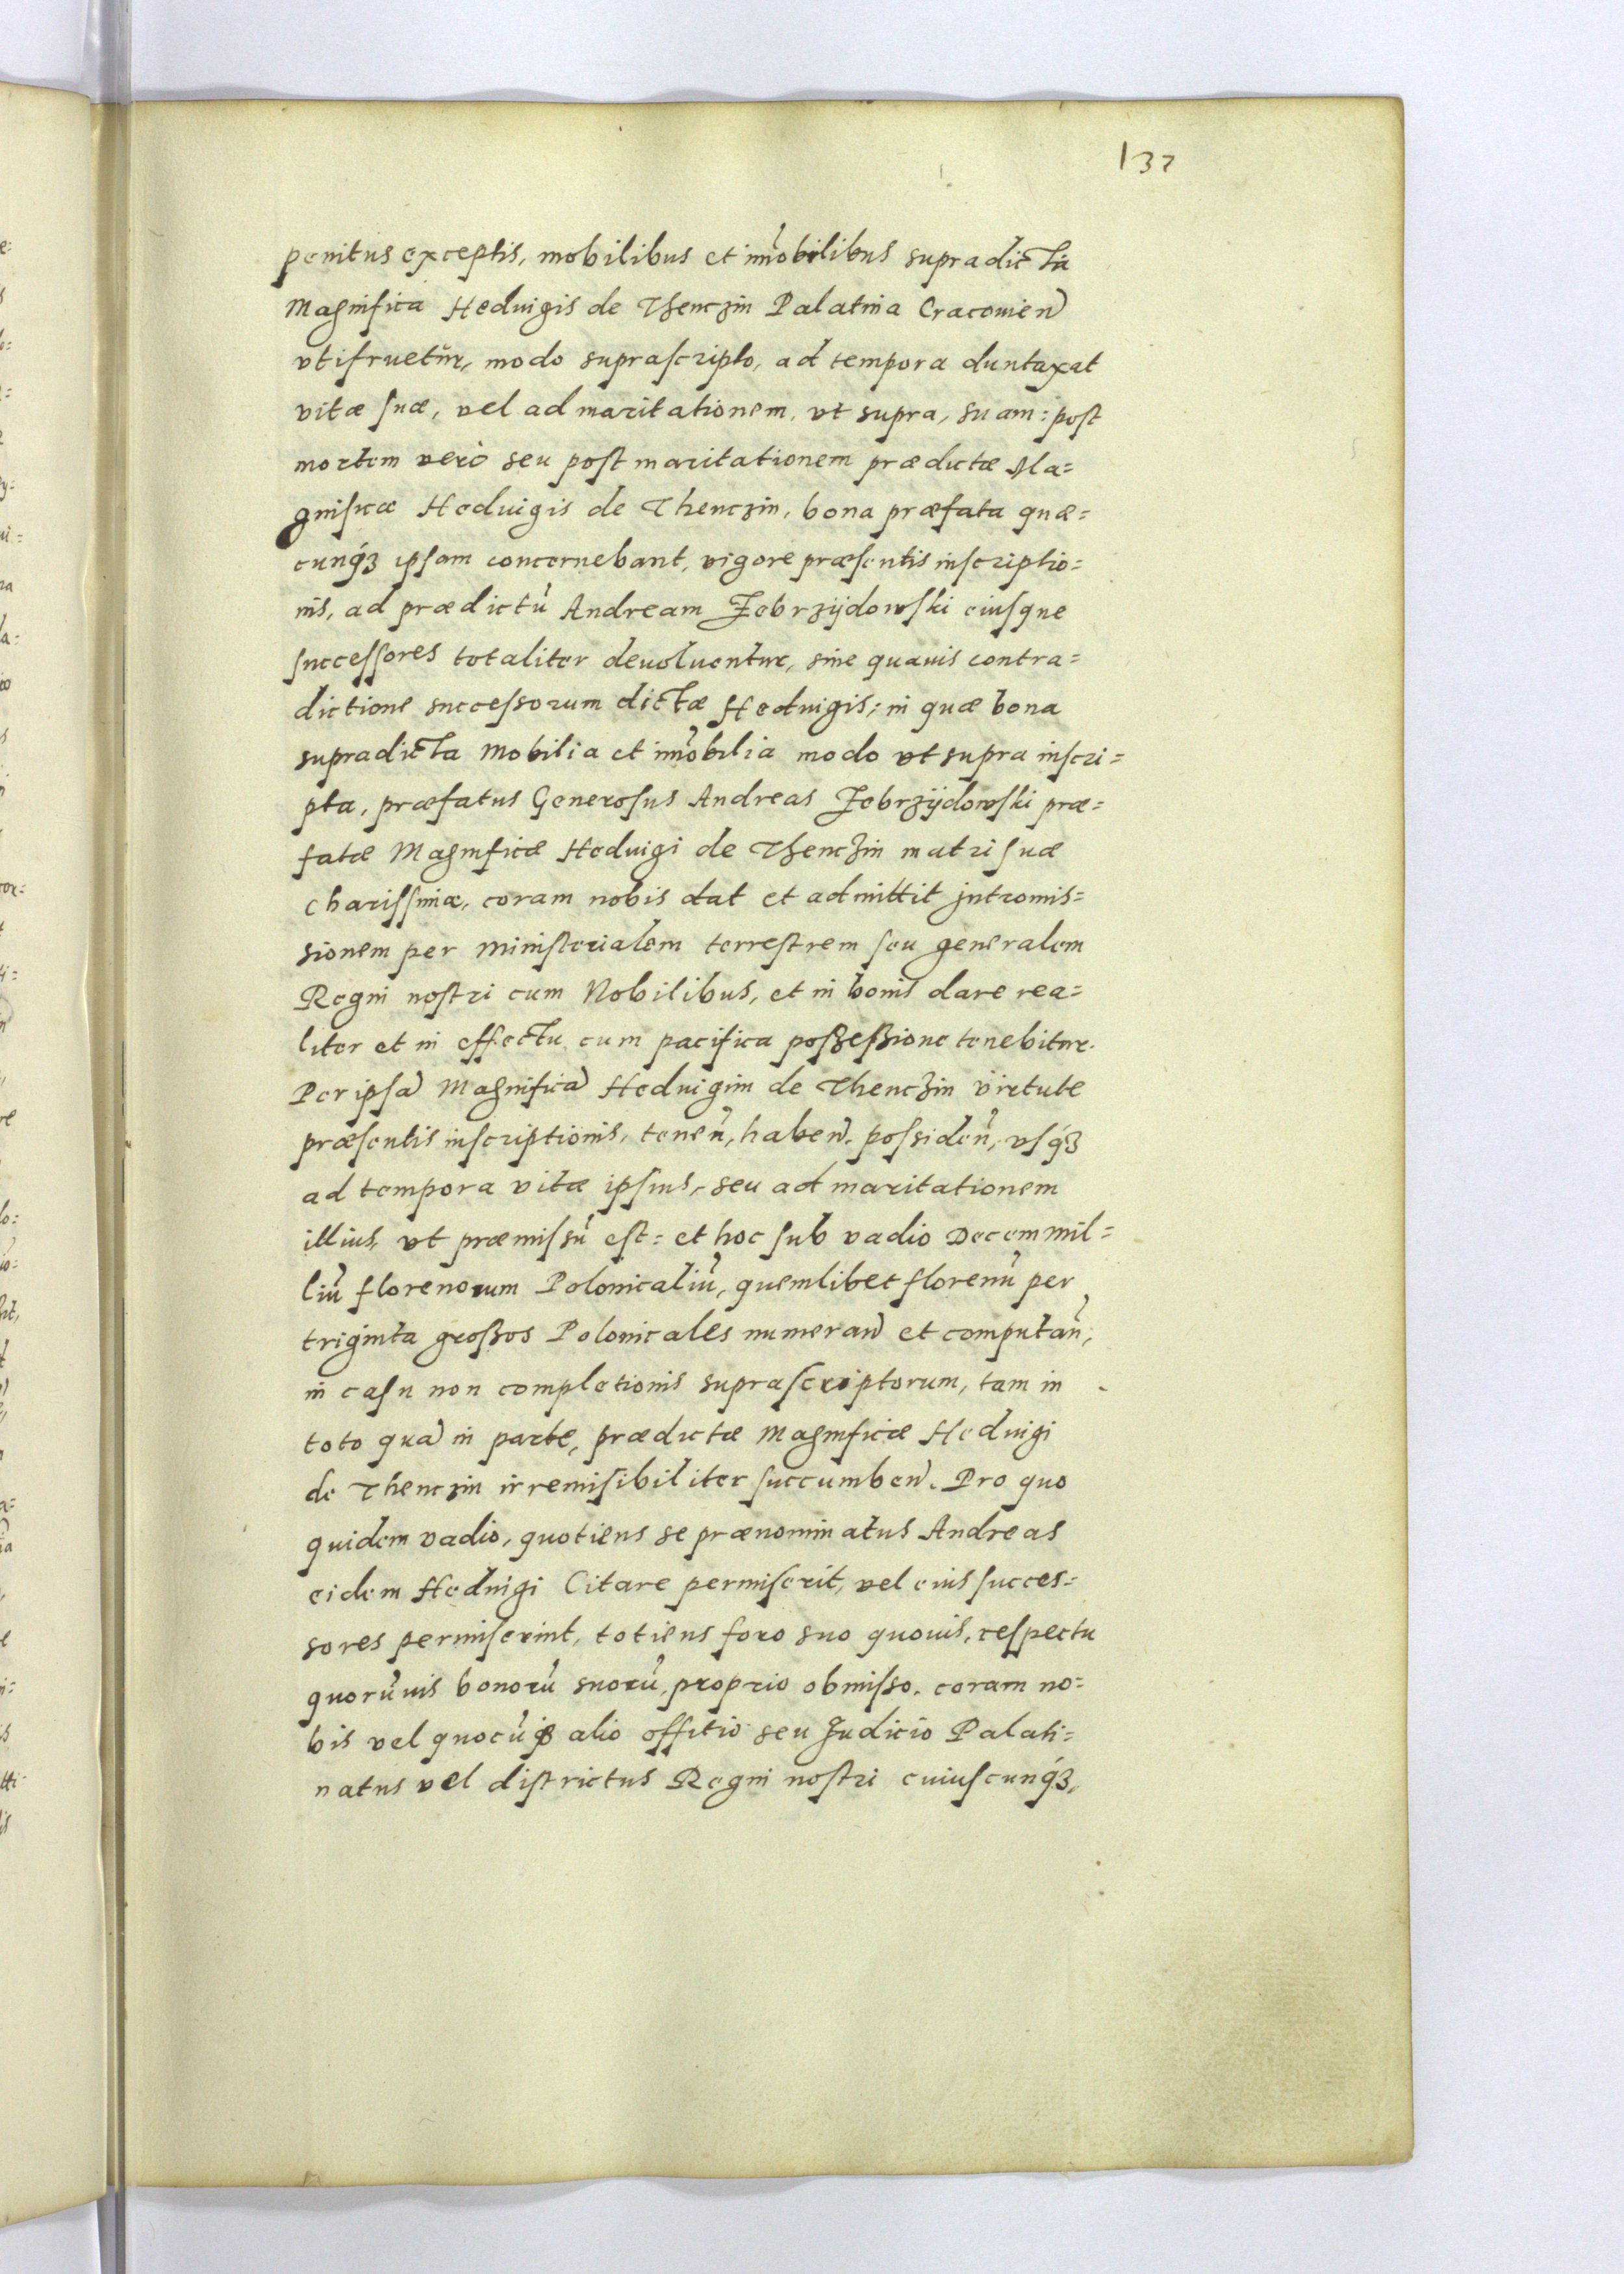 137
penitus exceptis, mobilibus et im̃obilibus supradicta
Magnifica Heduigis de Thenczin Palatina Cracouien̄
vtifruetur, modo suprascripto, ad tempora duntaxat
vitæ suæ, vel ad maritationem, vt supra, suam: post
mortem verò seu post maritationem prædictæ Ma=
gnificæ Heduigis de Thenczin, bona præfata quæ=
cunq́ꝫ ipsam concernebant, vigore præsentis inscriptio=
nis, ad prædictū Andream Zebrzijdowski eiusque
successores totaliter deuoluentur, sine quauis contra=
dictione successorum dictæ Heduigis; in quæ bona
supradicta Mobilia et im̃obilia modo vt supra inscri=
pta, præfatus Generosus Andreas Zebrzijdowski præ=
fatæ Magnificæ Heduigi de Thenczin matri suæ
charissimæ, coram nobis dat et admittit jntromis=
sionem per Ministerialem terrestrem seu generalem
Regni nostri cum Nobilibus, et in bonis dare rea=
liter et in effectu cum pacifica possessione tenebitur.
Per ipsā Magnificā Heduigim de Thenczin virtute
præsentis inscriptionis, tenen̄, haben̄. possiden̄, vsq́ꝫ
ad tempora vitæ ipsius, seu ad maritationem
illius, vt præmissū est: et hoc sub vadio Decem mil=
liū florenorum Polonicaliū, quemlibet florenū per
triginta grossos Polonicales numeran̄ et computan̄;
in casu non completionis suprascriptorum, tam in
toto quā in parte, prædictæ Magnificæ Heduigi
de Thenczin irremisibiliter succumben̄. Pro quo
quidem vadio, quotiens se prænominatus Andreas
eidem Heduigi Citare permiserit, vel eius succes=
sores permiserint, totiens foro suo quouis, respectu
quorūuis bonorū suorū, proprio obmisso. coram no=
bis vel quocūqꝫ alio offitio seu Judicio Palati=
natus vel districtus Regni nostri cuiuscunq́ꝫ,